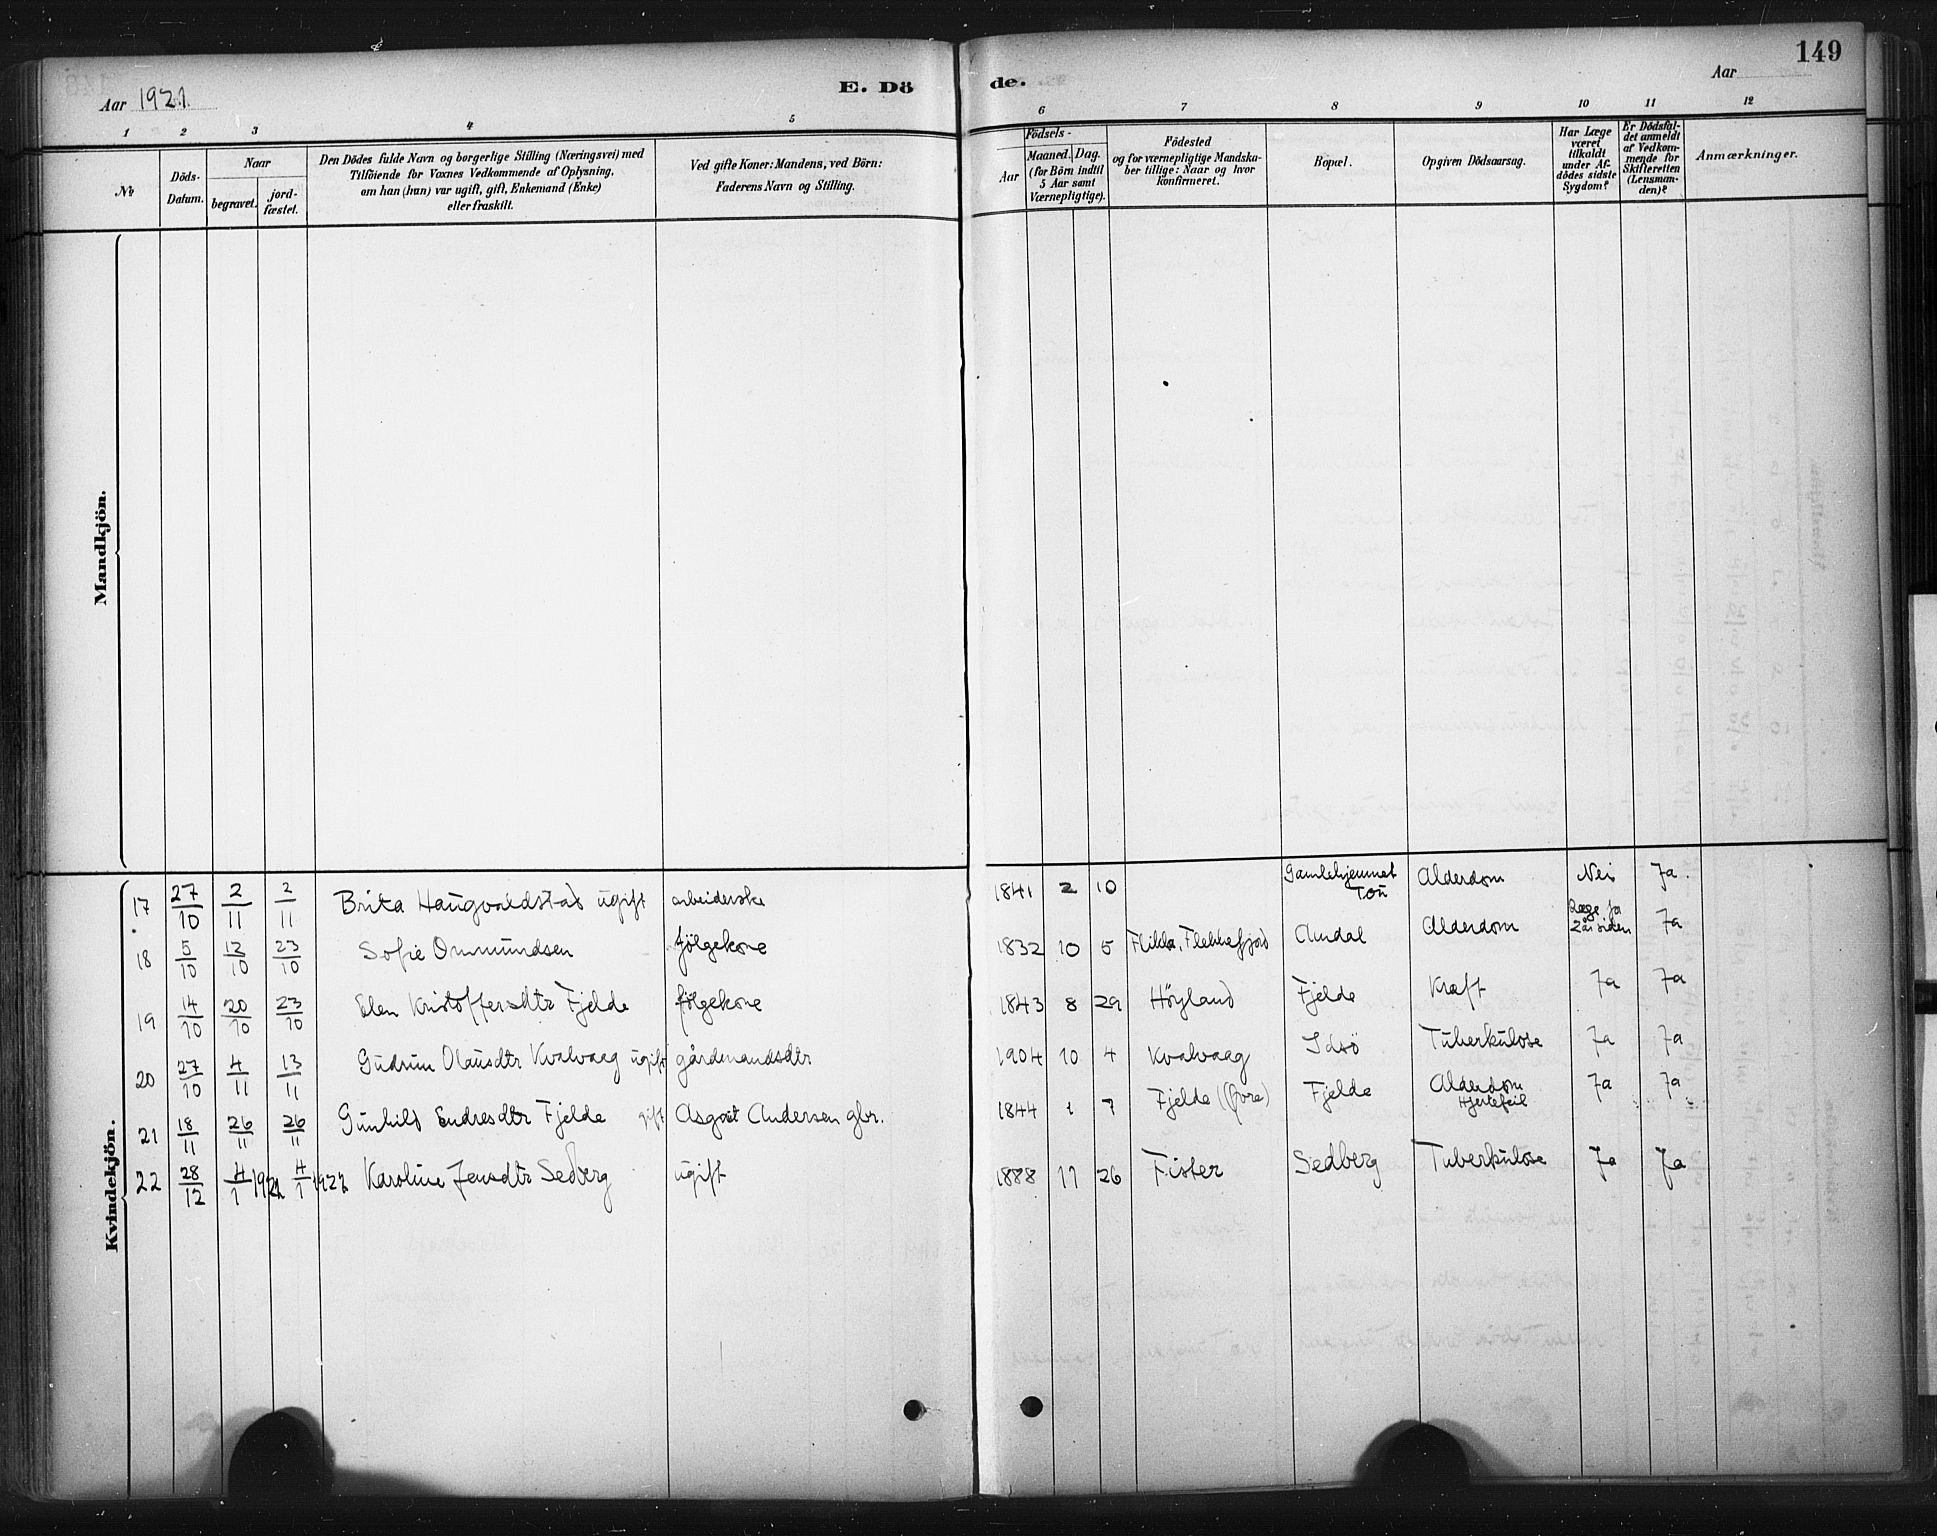 149
Aar 1921.
E. Dö
de.
Aar
1 2 3 4 5 6 7 8 9 10 11 12
№
Döds-
Datum.
Naar
begravet.
jord-
fæstet.
Den Dödes fulde Navn og borgerlige Stilling (Næringsvei) med
Tilföiende for Voxnes Vedkommende af Oplysning,
om han (hun) var ugift, gift, Enkemand (Enke)
eller fraskilt.
Ved gifte Koner: Mandens, ved Börn:
Faderens Navn og Stilling.
Födsels-
Aar
Maaned. Dag.
(for Börn indtil
5 Aar samt
Værnepligtige).
Födested
og for værnepligtige Mandska-
ber tillige: Naar og hvor
konfirmeret.
Bopæl.
Opgiven Dödsaarsag.
Har Læge
været
tilkaldt
under Af-
dödes sidste
Sygdom?
Er Dödsfal-
det anmeldt
af Vedkom-
mende for
Skifteretten
(Lensman-
den)?
Anmærkninger.
Mandkjön.
Kvindekjön.
17 27/10 2/11 2/11 Brita Haugvaldstad ugift arbeiderske 1841 2 10 Gamlehjemmet Tou Alderdom Nei Ja.
18 5/10 13/10 23/10 Sofie Ommundsen fölgekone 1832 10 5 Flikka, Flekkefjord Aardal Alderdom Læge for 2 år siden Ja
19 14/10 20/10 23/10 Elen Kristoffersdtr Fjelde fölgekone 1843 8 29 Höyland Fjelde Kræft Ja Ja
20 27/10 4/11 13/11 Gudrun Olausdtr Kvalvaag ugift gårdmandsdtr 1904 10 4 Kvalvaag Idsö Tuberkulose Ja Ja
21 18/11 26/11 26/11 Gunhild Endresdtr Fjelde gift Asgaut Andersen gbr. 1844 1 7 Fjelde (Øvre) Fjelde Alderdom Hjertefeil Ja Ja
22 28/12 4/1 1922 4/1 1922 Karoline Jensdtr Sedberg ugift 1888 11 26 Fister Sedberg Tuberkulose Ja Ja